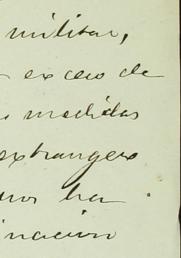 militar,
exceso de
medidas
extrangero
ha
nacion